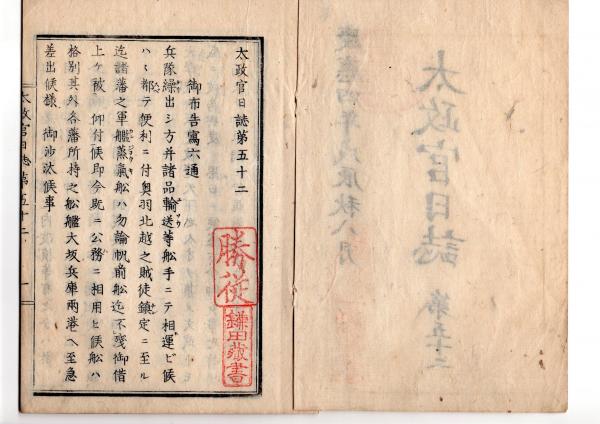 慶應四年戊辰秋八月
太政官日誌
第五十二
太政官日誌第五十二
御布告寫六通
兵隊繰出シ方并諸品輸送等船手ニテ相運ビ候
ハヽ都テ便利ニ付奥羽北越之賊徒鎮定ニ至ル
迄諸藩之軍艦蒸氣船ハ勿論帆前船迄不殘御借
上ケ被 仰付候即今既ニ公務ニ相用ヒ候船ハ
格別其外各藩所持之船艦大坂兵庫兩港ヘ至急
差出候樣 御沙汰候事
太政官日誌第五十二
一
藏書